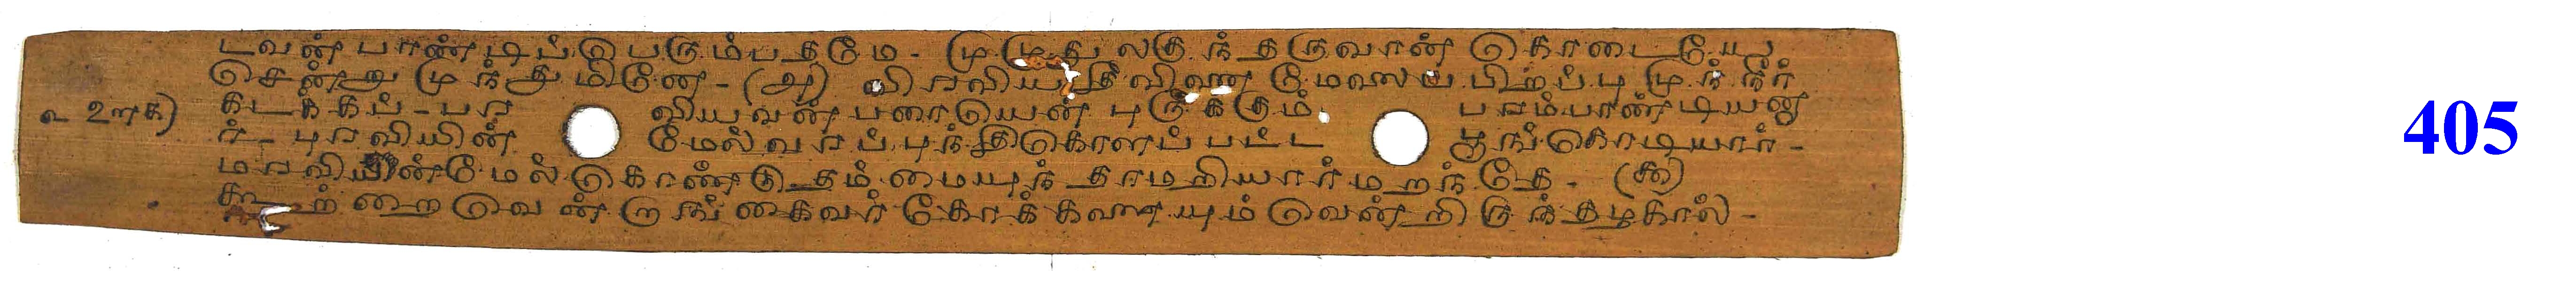 டவன் பாண்டிப்பெரும்பதமே - முழுதுலகுந்தருவான் கொடையே
சென்று முந்துமினே - (அ) விரவிய தீவினை மேலைப் பிறப்பு முந்நீர்
௨௩௧) கடக்கப் - பர வியவன்பரையென் புருக்கும் பரம்பாண்டியனா
ர் - புரவியின் மேல்வரப்புந்திகொளப்பட்ட பூங்கொடியார் -
மரவியன்மேல் கொண்டு தம்மையுந் தாமறியார் மறந்தே - (௯)
கூற்றைவென்றாங்கைவர் கோக்களையும் வென்றிருந்தழகால் -
405